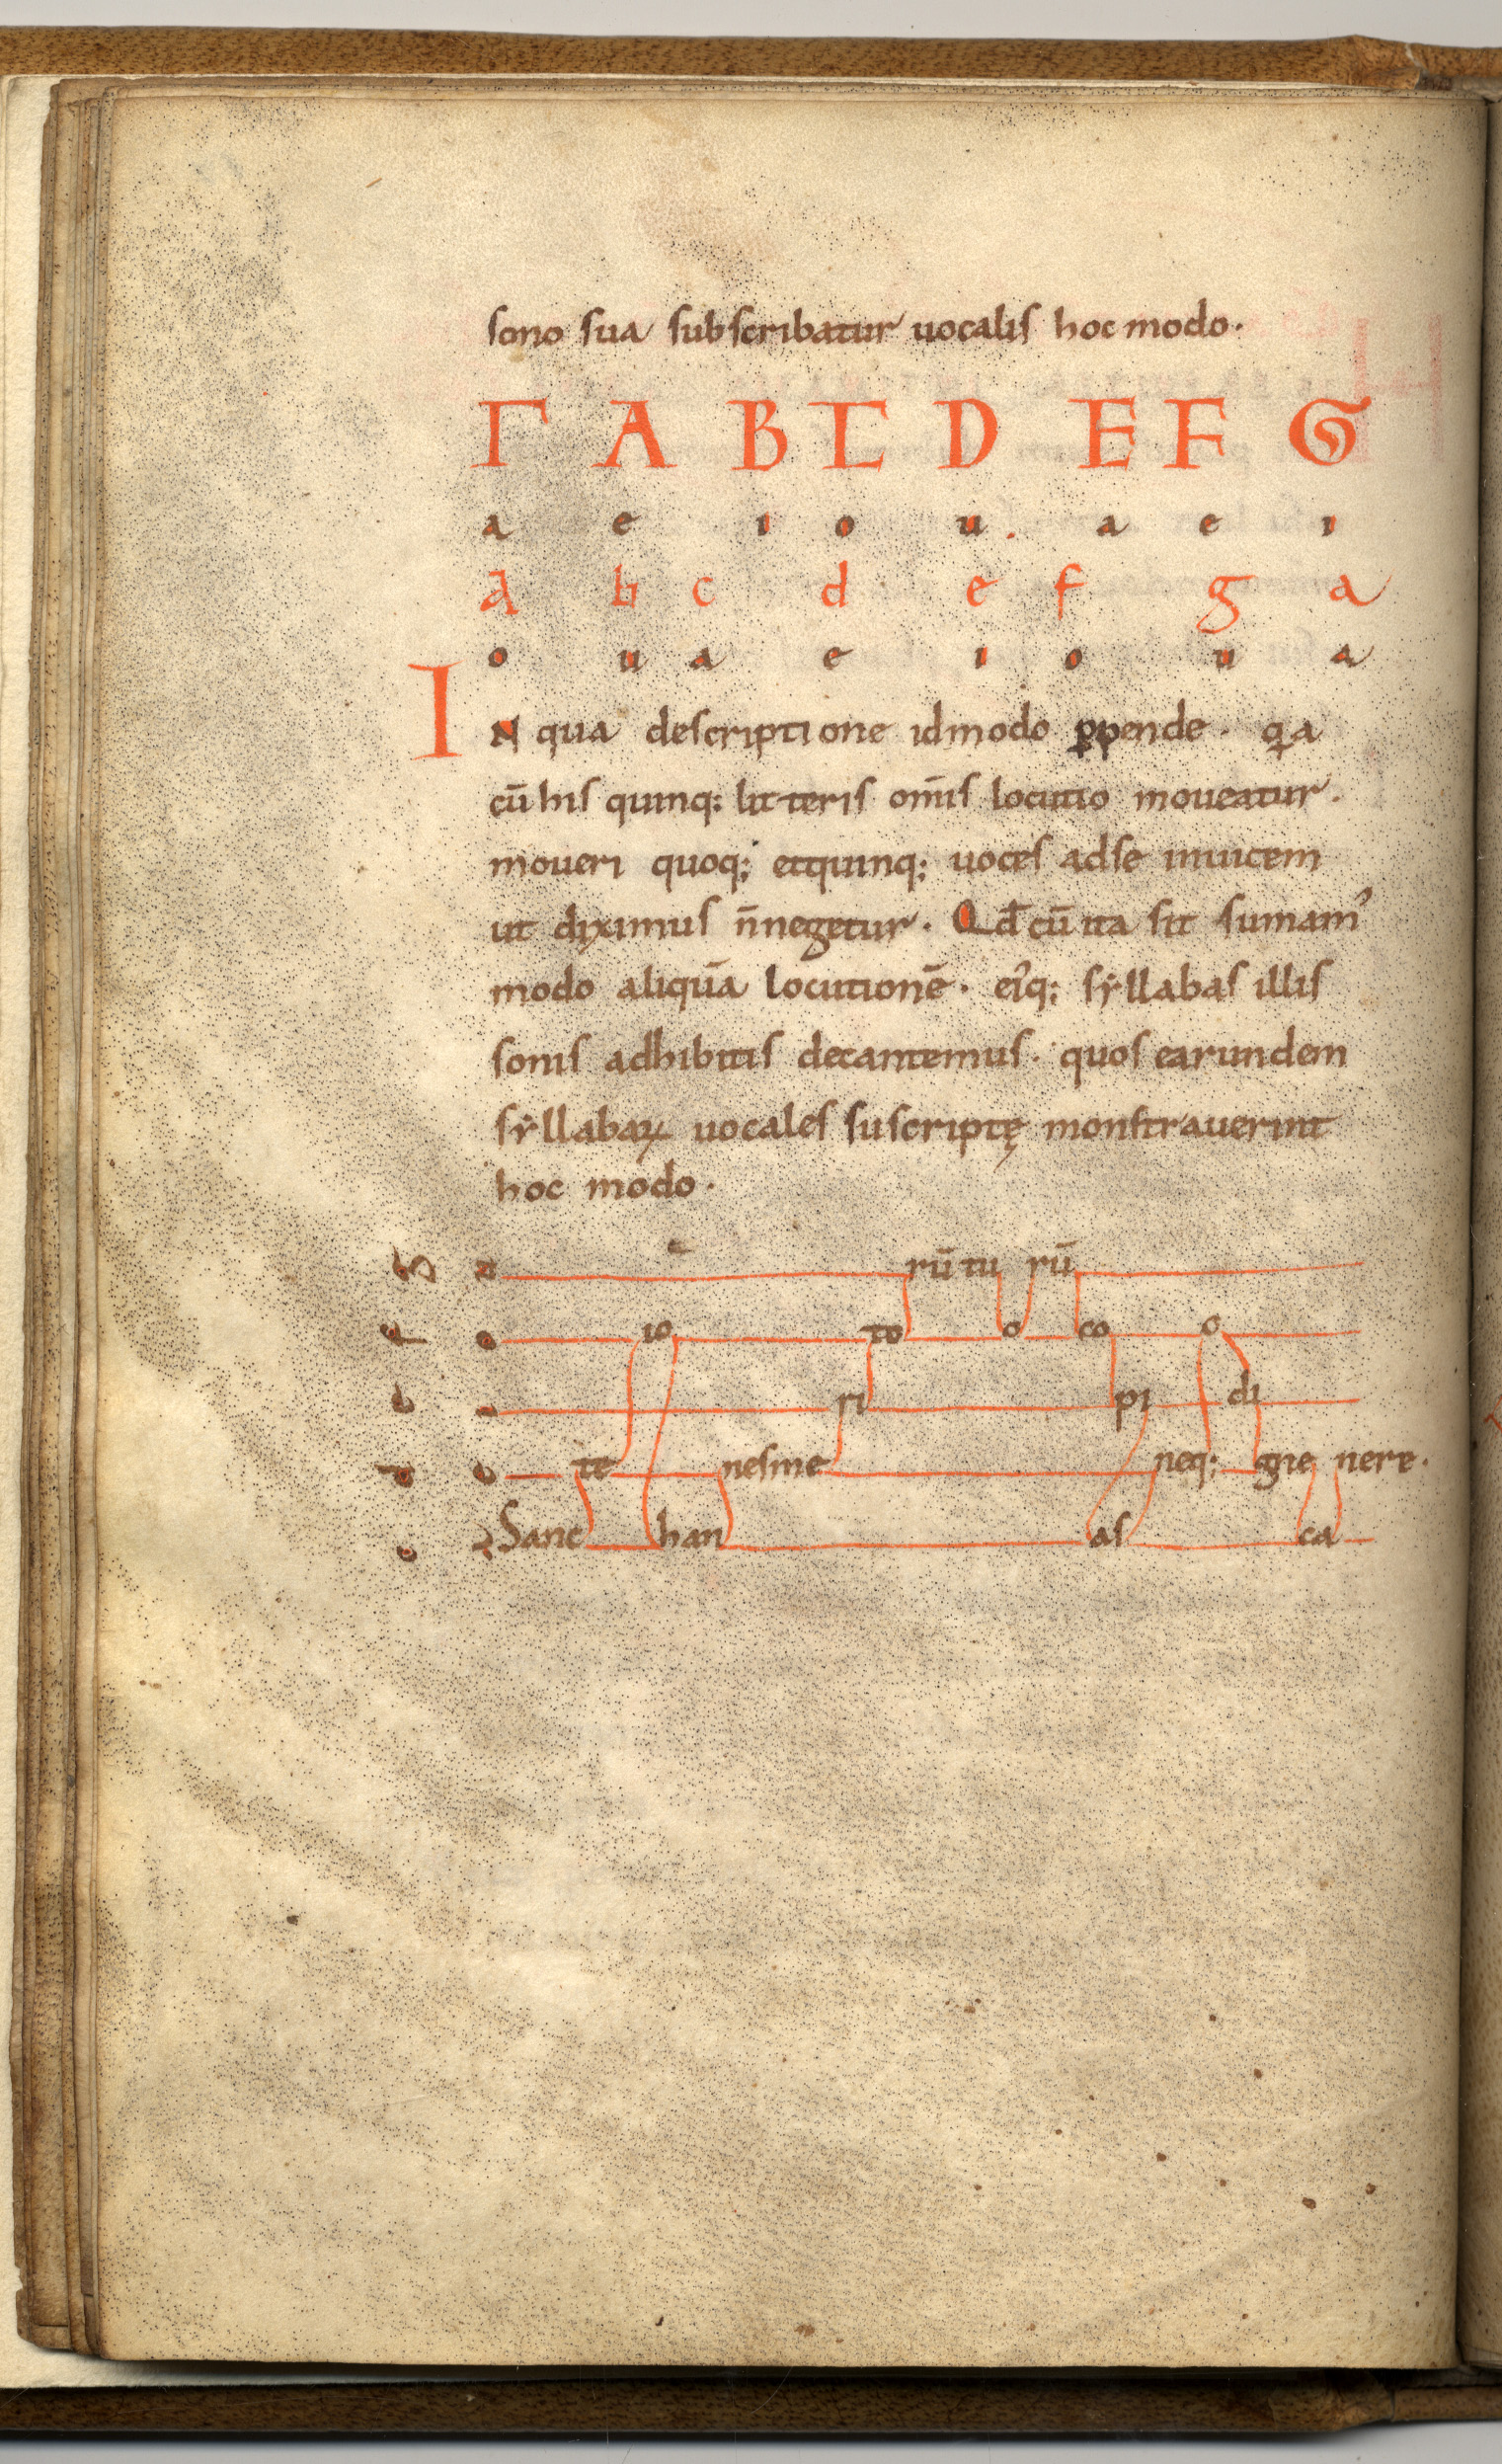 sono sua subscribatur uocalis hoc modo.
Γ A B C D E F G
a e i o u. a e i
a b c d e f g a
o u a e i o u a
IN qua descriptione id modo ꝑpende. qa
cū his quinq; litteris om̄is locutio moueatur.
moueri quoq; et quinq; uoces ad se inuicem
ut diximus n̄ negetur. Qd̄ cū ita sit sumam᾽
modo aliquā locutionē. ei᾽q; syllabas illis
sonis adhibitis decantemus. quos earundem
syllabaꝝ uocales suscriptę monstrauerint
hoc modo.
g u rū tu rū
f o io to o co o
e i ri pi di
d e te nesme neq; gne nere.
c a Sanc han as ca